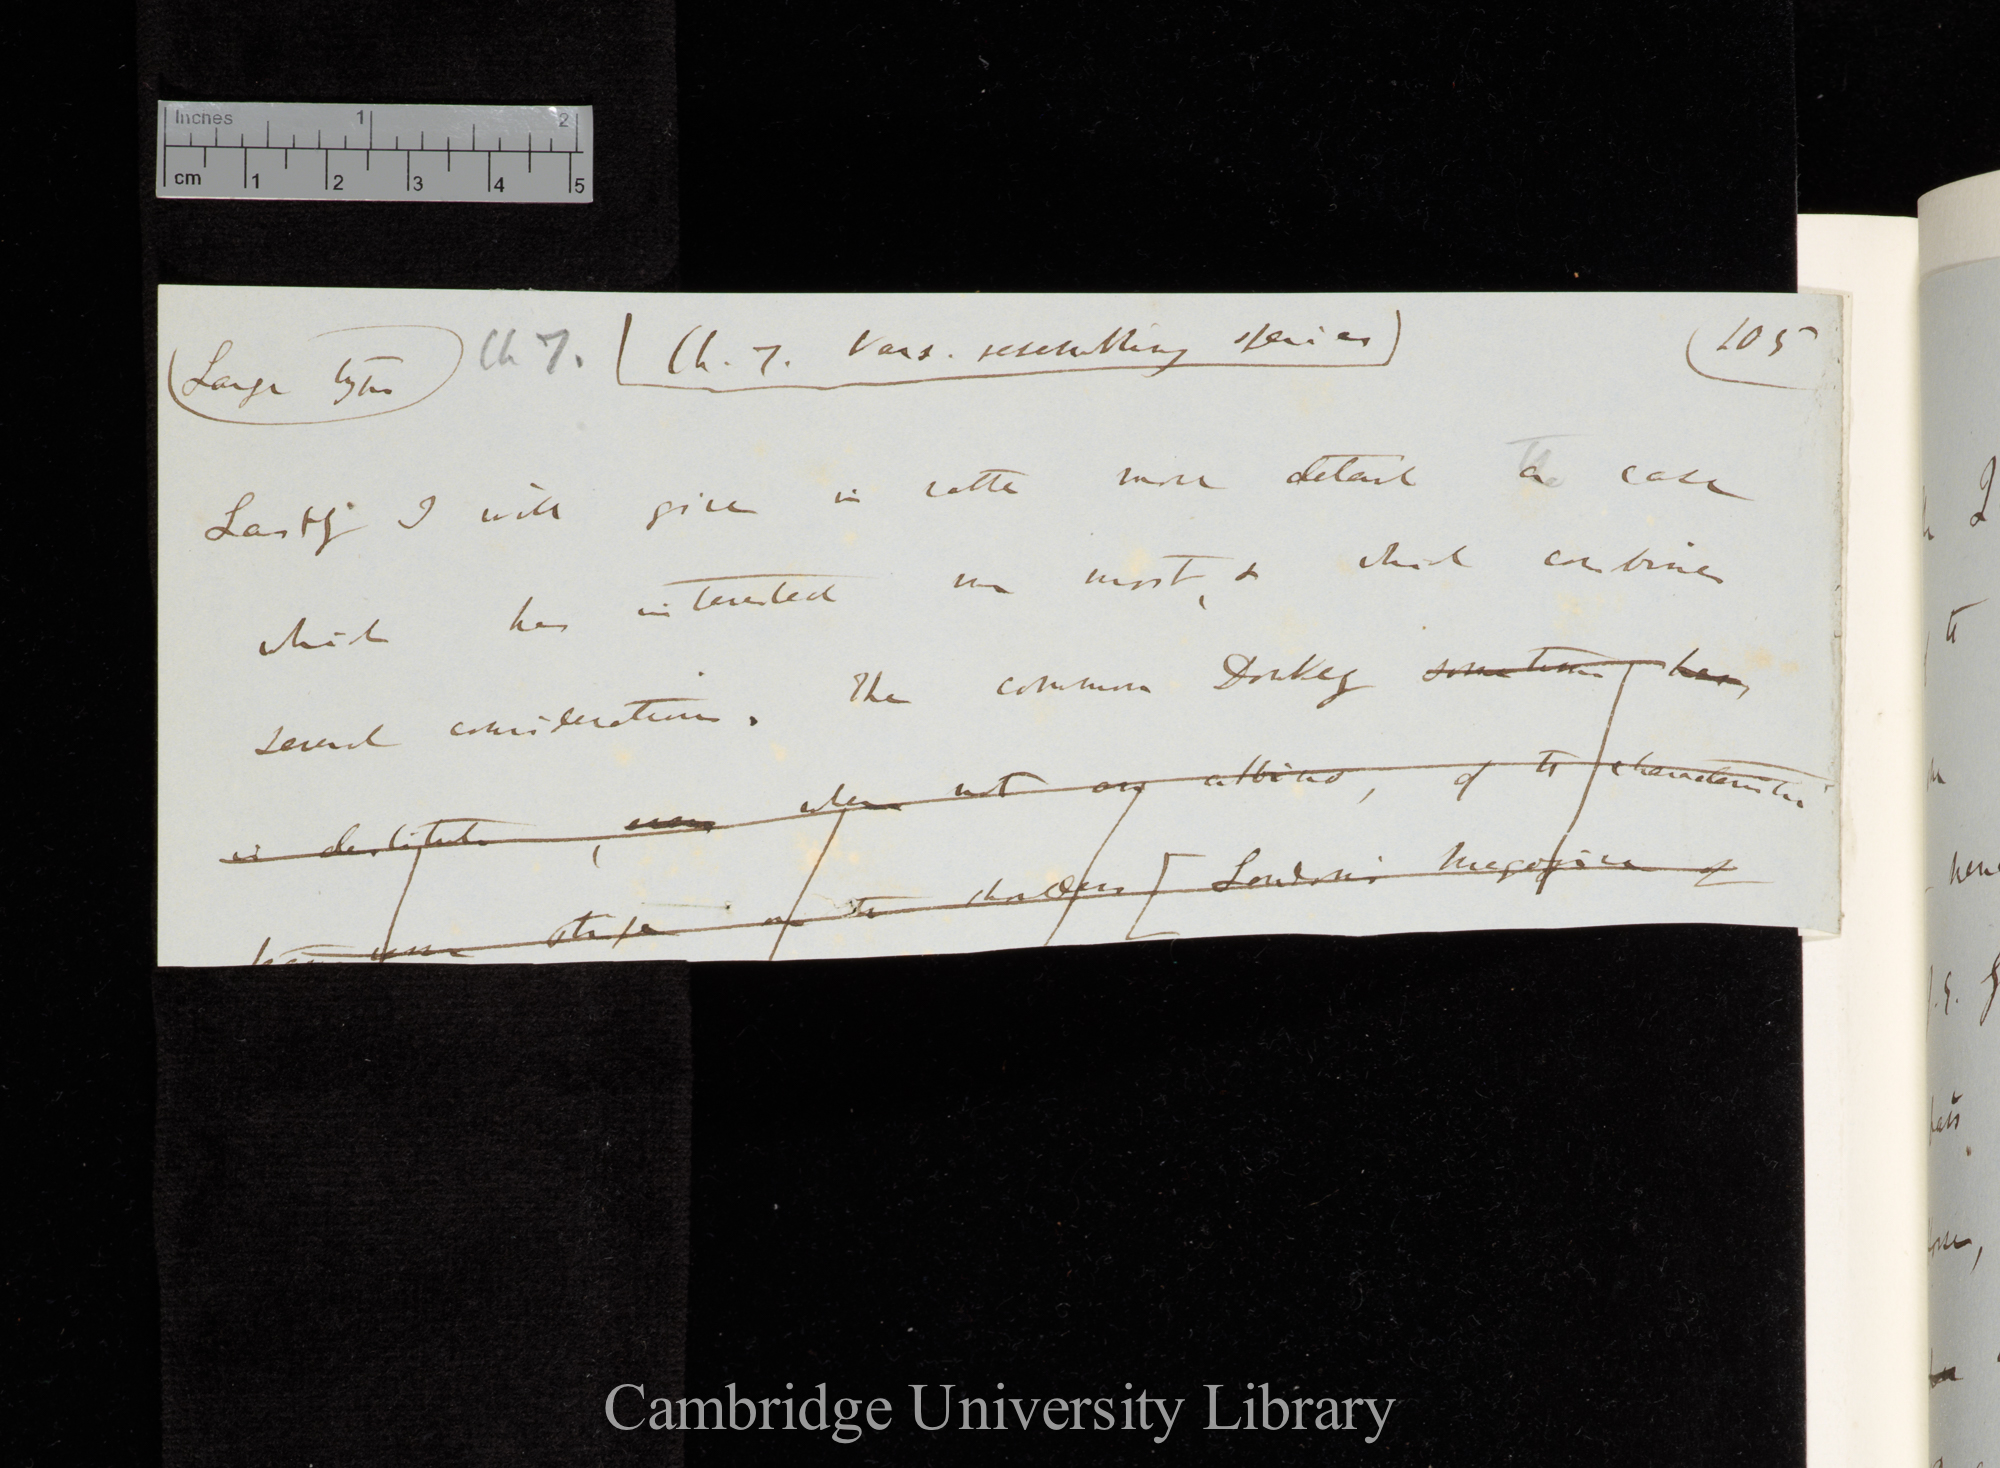 Inches 1 2
cm 1 2 3 4 5
(Large type) Ch 7. [Ch. 7. Vars. resembling species] (105
Lastly I will give in rather more detail a case
which has interested me most, & which combines
several considerations. The common Donkey sometimes has,
is destitute, when not an albino, of the characteristic
stripe on the shoulders [Loudon's Magazine of
Cambridge University Library